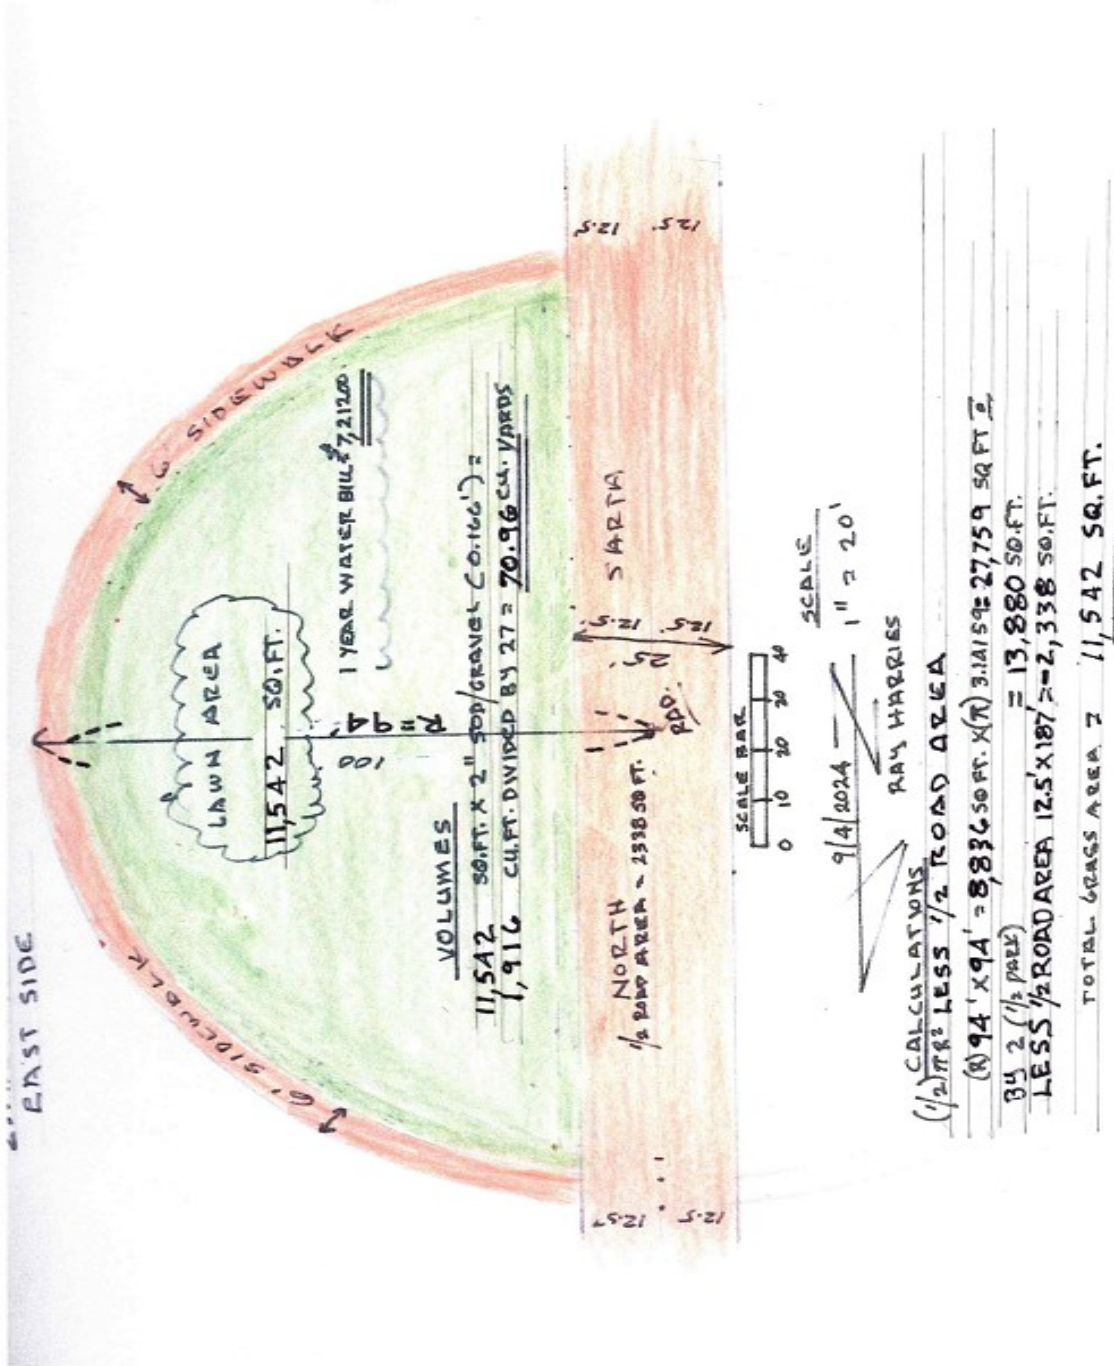 EAST SIDE
6' SIDEWALK
6' SIDEWALK
LAWN AREA
11,542 SQ.FT.
100
R = 94
1 YEAR WATER BILL $7,212.00
VOLUMES
11,542 SQ.FT. X 2" SOD/GRAVEL (0.166') =
1,916 CU.FT. DIVIDED BY 27 = 70.96 CU. YARDS
12.5'
12.5
NORTH
1/2 ROAD AREA = 2338 SQ FT.
12.5'
12.5'
25'
RAD.
SARTA
12.5
12.5'
SCALE BAR
0 10 20 30 40
SCALE
9/4/2024
1" = 20'
RAY HARRIES
CALCULATIONS
(1/2)πR² LESS 1/2 ROAD AREA
(R) 94' X 94' = 8,836 SQ FT. X (π) 3.14159 = 27,759 SQ FT ÷
BY 2 (1/2 PARK) = 13,880 SQ.FT.
LESS 1/2 ROAD AREA 12.5' X 187' = -2,338 SQ.FT.
TOTAL GRASS AREA = 11,542 SQ.FT.